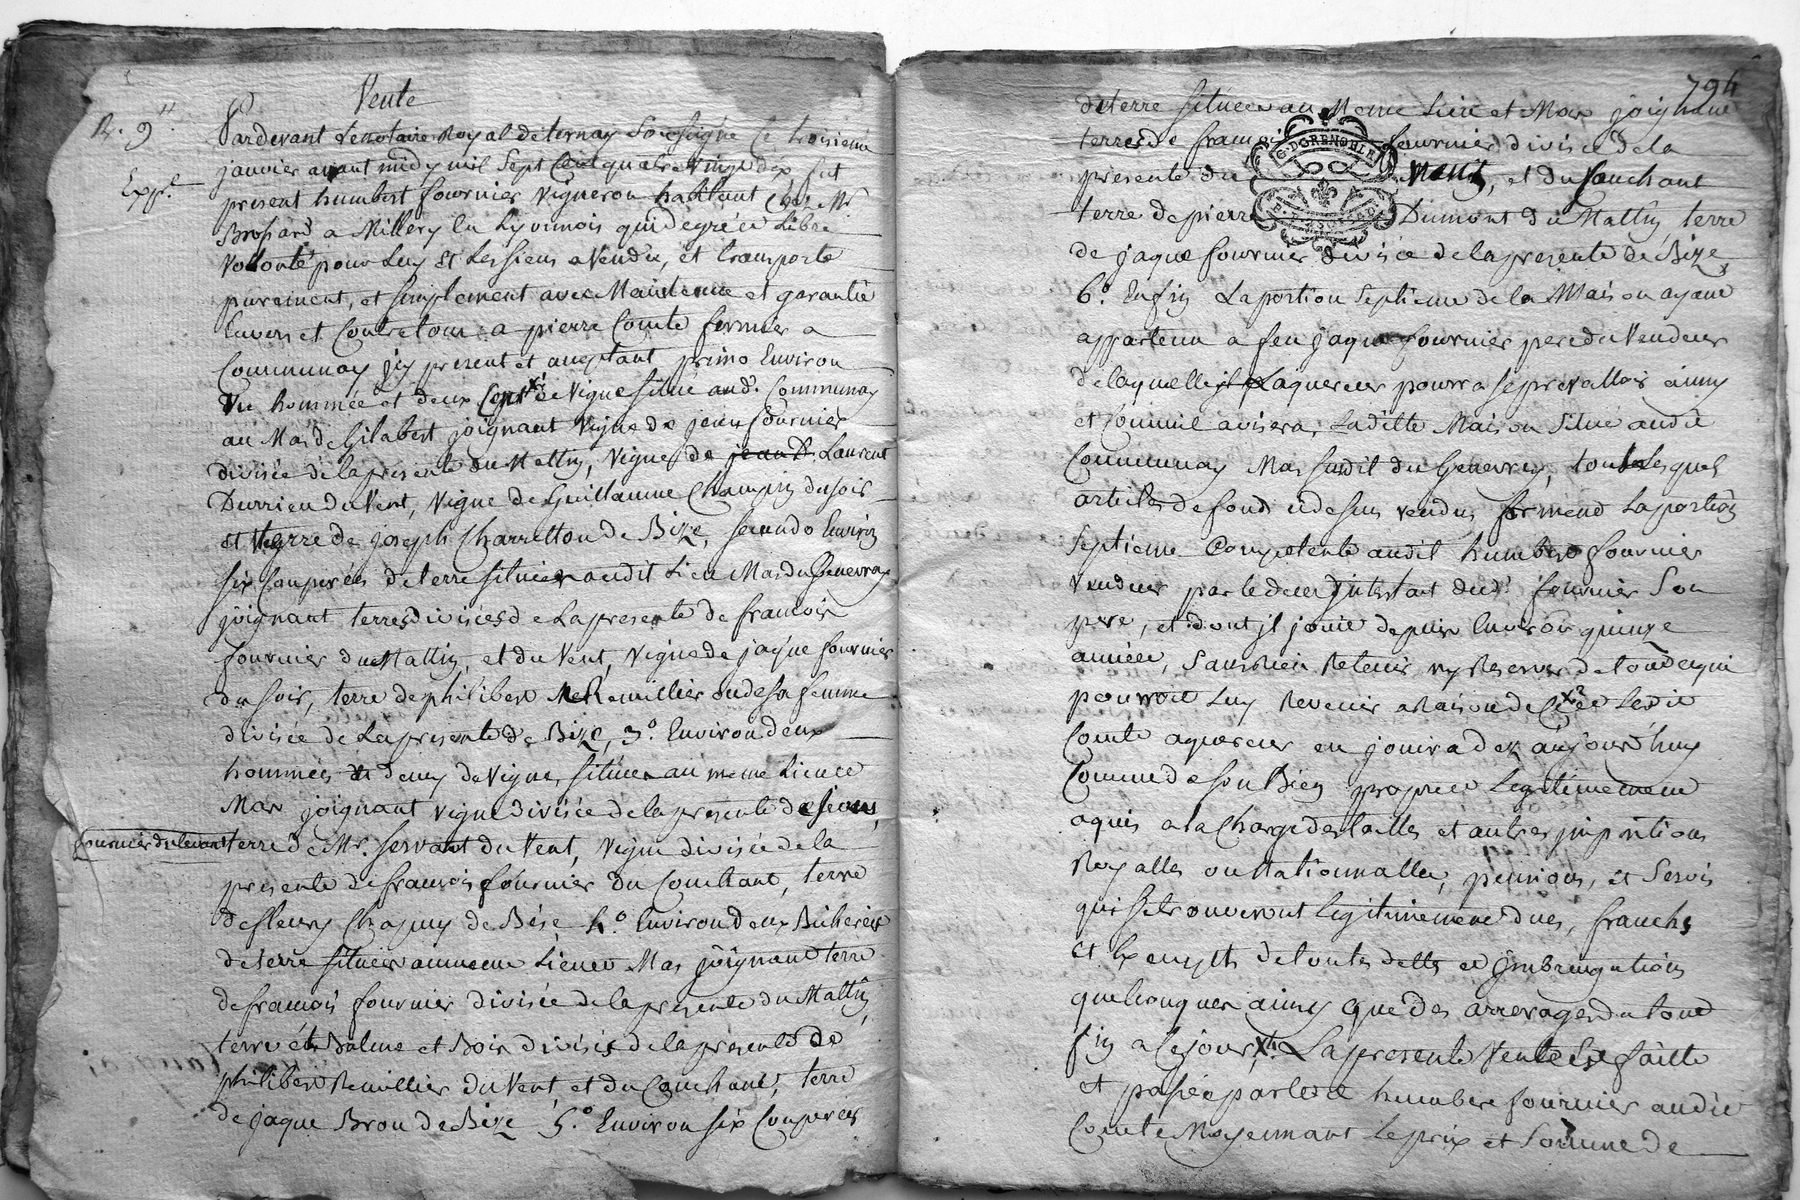 Vente
R. 9"
Expé.
Pardevant Le notaire Royal de ternay Soussigné Ce troisieme
janvier avant midy mil Sept Cent quatre vingt dix fut
present humbert fournier vigneron habitant Chez Mr.
Brossard a Millery en Lyonnois qui de gré et Libre
Volonté pour Luy Et Les siens a Vendu, et transporte
purement, et simplement avec Maintenue et garantie
Envers et Contre tous a pierre Comte fermier a
Communay jcy present et acceptant primo Environ
Une hommée et deux de Vigne située aud. Communay
au Mas de Gilabert joignant Vigne de jean fournier
divisée de la presente du Mattin, Vigne de jean D. Laurent
Durrieu du Vent, Vigne de Guillaume Champin du soir
et terre de joseph Charretton de Bize, secundo Environ
six Couperées de terre située audit Lieu Mas du Genevray
joignant terres divisées de La presente de francois
fournier du Mattin, et du Vent, Vigne de jaque fournier
du soir, terre de philibert Remillier ou de sa femme
divisée de La presente de Bize, 3.o Environ deux
hommées et demy de Vigne, située au meme Lieu et
Mas joignant Vigne divisée de la presente de jean
fournier du levant terre de Mr. Servant du Vent, Vigne divisée de la
presente de francois fournier du Couchant, terre
de fleury Chapuy de Bise 4.o Environ deux Bicherées
de terre située au meme Lieu et Mas joignant terre
de francois fournier divisée de la presente du Mattin,
terre et Balme et Bois divisés de la presente de
philibert Remillier du Vent, et du Couchant, terre
de jaque Bron de Bize 5.o Environ six Couperées
794
de terre située au Meme Lieu et Mas joignant
terre de fournier divisée de la
presente du et du Couchant
terre de pierre Dumont du Mattin, terre
de jaque fournier divisée de la presente de Bize,
G. D GRENOBLE
6.o Enfin La portion Septieme de la Maison ayant
appartenu a feu jaque fournier pere du Vendeur
de laquelle L'aquereur pourra se prevalloir ainsy
et Comme avisera, Laditte Maison Situé audit
Communay Mas susdit du Genevray, tous Lesquels
articles de fond cidessus vendus forment La portion
Septieme Competente audit humbert fournier
vendeur par le deced jntestat dud. fournier Son
pere, et dont jl jouit depuis Environ quinze
année, Sans Rien Retenir, ny Reserver de tout ce qui
pourroit Luy Revenir a Raison de Ce Ledit
Comte aquereur en jouira dez aujourd'huy
Comme de son Bien propre et Legitimement
aquis a la Charge des tailles et autres jmpositions
Royalles ou Nationnalles, pensions, et Servis
qui se trouveront legitimement dues, franchs
et Exempts de toutes detts et jmbringations
quelconques ainsy que des arrerages du tout
fin a Ce jour, La presente Vente Est faitte
et passée par ledit humbert fournier audit
Comte Moyennant Le prix et Somme de